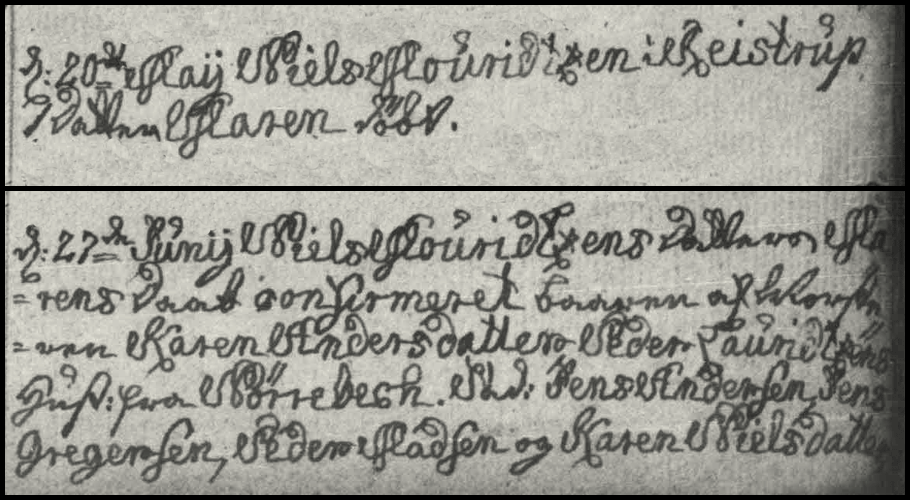 d: 20de Maij Niels Mouridtzen i Reistrup
Datter Maren døbt.
d: 27de Junij Niels Mouridtzens Datters Ma
=rens Daab confirmeret baaren af
Karen Andersdatter Peder Lauridtzens
Hust: fra Nörrebech. Fad: Jens Andersen, Jens
Gregersen, Peder Madsen og Karen Nielsdatter